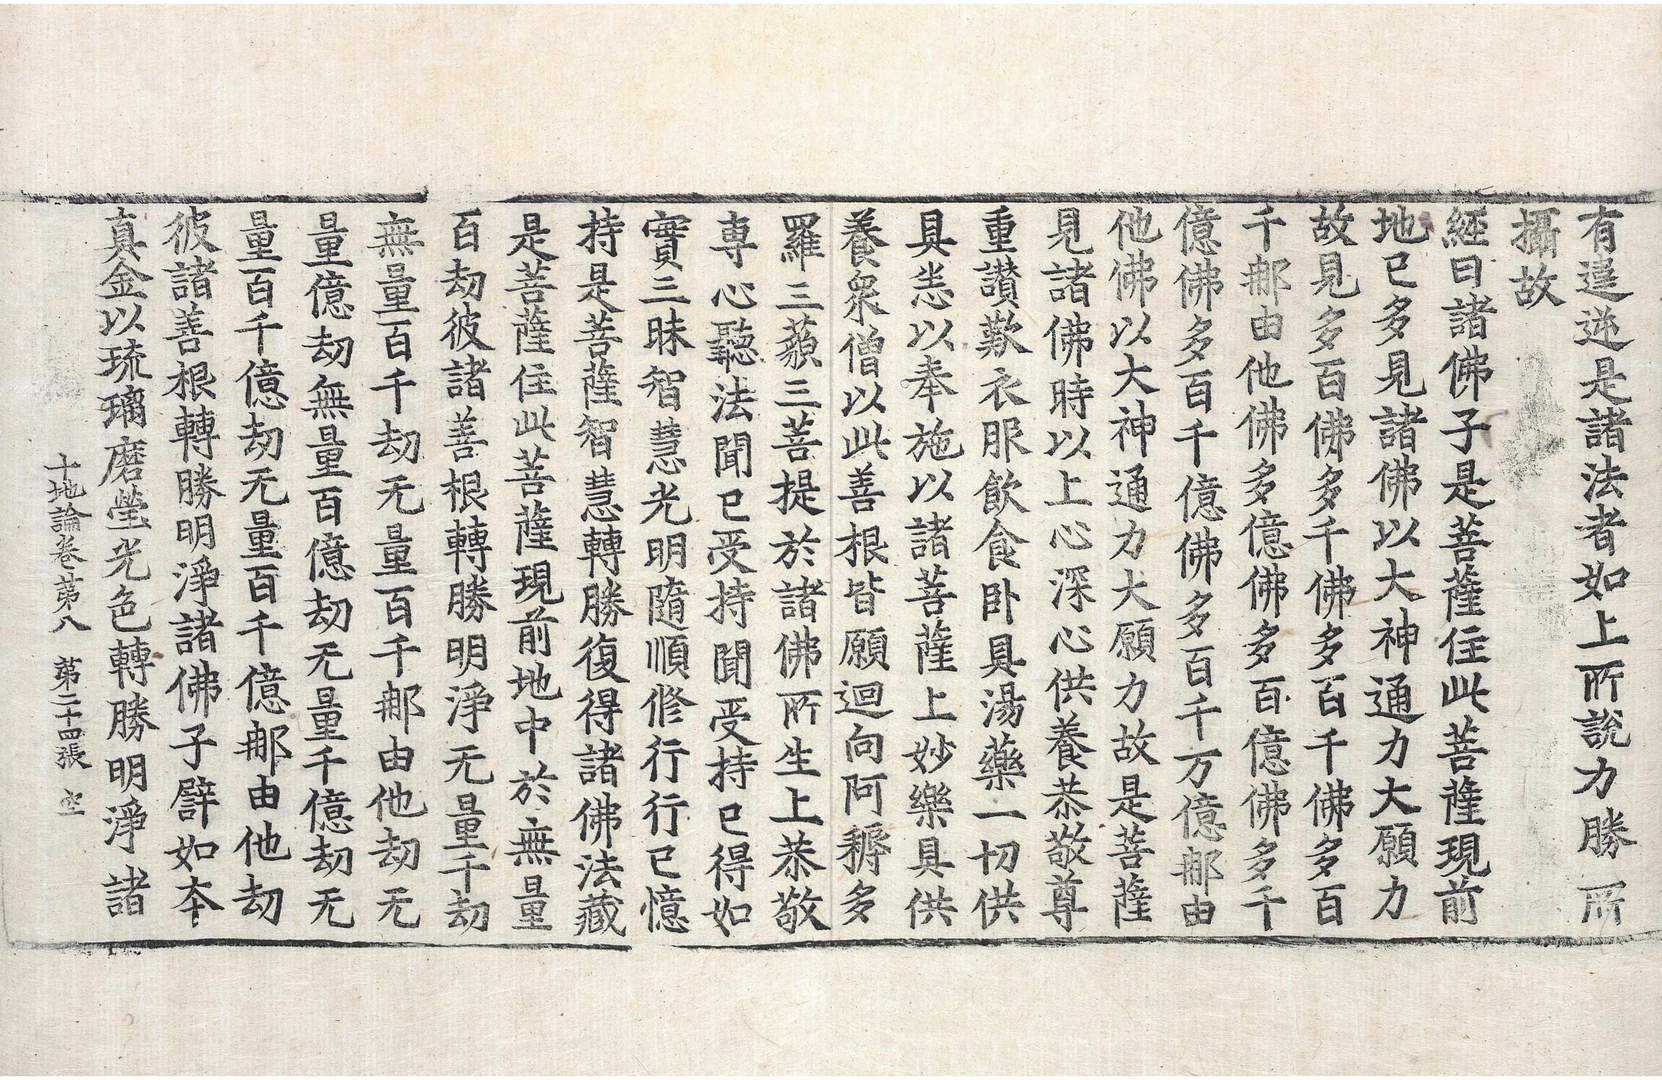 有違逆是諸法者如上所說力勝所
攝故
經曰諸佛子是菩薩住此菩薩現前
地已多見諸佛以大神通力大願力
故見多百佛多千佛多百千佛多百
千那由他佛多億佛多百億佛多千
億佛多百千億佛多百千万億那由
他佛以大神通力大願力故是菩薩
見諸佛時以上心深心供養恭敬尊
重讃歎衣服飲食卧具湯藥一切供
具悉以奉施以諸菩薩上妙樂具供
養衆僧以此善根皆願迴向阿耨多
羅三藐三菩提於諸佛所生上恭敬
専心聽法聞已受持聞受持已得如
實三昧智慧光明隨順修行行已憶
持是菩薩智慧轉勝復得諸佛法藏
是菩薩住此菩薩現前地中於無量
百劫彼諸善根轉勝明淨无量千劫
無量百千劫无量百千那由他劫无
量億劫無量百億劫无量千億劫无
量百千億劫无量百千億那由他劫
彼諸善根轉勝明淨諸佛子譬如本
真金以琉璃磨瑩光色轉勝明淨諸
十地論卷苐八 苐二十四張 空